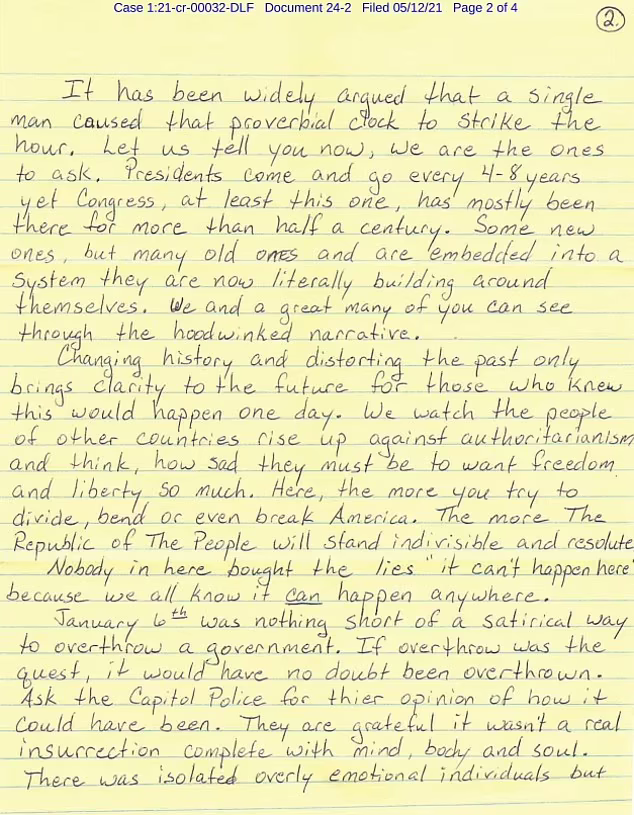 Case 1:21-cr-00032-DLF Document 24-2 Filed 05/12/21 Page 2 of 4
2.
It has been widely argued that a single
man caused that proverbial clock to strike the
hour. Let us tell you now, we are the ones
to ask. Presidents come and go every 4-8 years
yet Congress, at least this one, has mostly been
there for more than half a century. Some new
ones, but many old ones and are embedded into a
system they are now literally building around
themselves. We and a great many of you can see
through the hoodwinked narrative.
Changing history and distorting the past only
brings clarity to the future for those who knew
this would happen one day. We watch the people
of other countries rise up against authoritarianism
and think, how sad they must be to want freedom
and liberty so much. Here, the more you try to
divide, bend or even break America. The more The
Republic of The People will stand indivisible and resolute
Nobody in here bought the lies "it can't happen here"
because we all know it can happen anywhere.
January 6th was nothing short of a satirical way
to overthrow a government. If overthrow was the
quest, it would have no doubt been overthrown.
Ask the Capitol Police for thier opinion of how it
could have been. They are grateful it wasn't a real
insurrection complete with mind, body and soul.
There was isolated overly emotional individuals but